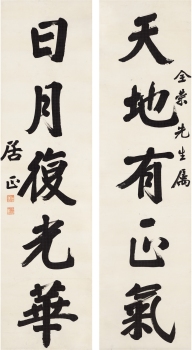 天地有正氣
全榮先生屬
日月復光華
居正